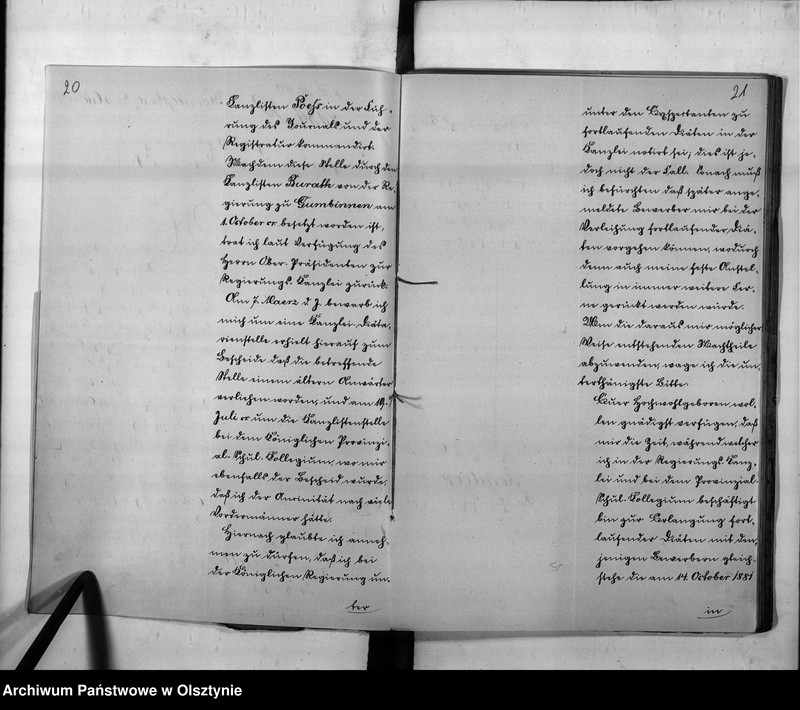 20
Kanzlisten Poehs in der Füh-
rung des Journals und der
Registratur kommandirt.
Nachdem diese Stelle durch den
Kanzlisten Burath von der Re-
gierung zu Gumbinnen am
1. October cr besetzt worden ist,
trat ich laut Verfügung des
Herrn Ober-Präsidenten zur
Regierungs-Kanzlei zurück.
Am 7. Maerz d J. bewarb ich
mich um eine Kanzlei-Diäta-
rienstelle erhielt hierauf zum
Bescheide daß die betreffende
Stelle einem ältern Anwärter
verliehen worden, und am 19.
Juli cr um die Kanzlistenstelle
bei dem Königlichen Provinzi-
al-Schul-Kollegium, wo mir
ebenfalls der Bescheid wurde,
daß ich der Anciennität nach viele
Vordermänner hätte.
Hiernach glaubte ich anneh-
men zu dürfen, daß ich bei
der Königlichen Regierung un-
ter
21
unter den Exspectanten zu
fortlaufenden Diäten in der
Kanzlei notirt sei; dies ist je-
doch nicht der Fall. Sonach muß
ich befürchten daß später ange-
meldete Bewerber mir bei der
Verleihung fortlaufender Diä-
ten vorgehen können, wodurch
denn auch meine feste Anstel-
lung in immer weitere Fer-
ne gerückt werden würde.
Um die daraus mir möglicher
Weise entstehenden Nachtheile
abzuwenden, wage ich die un-
terthänigste Bitte:
Euer Hochwohlgeboren wol-
len gnädigst verfügen, daß
mir die Zeit, während welcher
ich in der Regierungs-Kanz-
lei und bei dem Provinzial-
Schul-Kollegium beschäftigt
bin zur Erlangung fort-
laufender Diäten mit den-
jenigen Bewerbern gleich-
stehe die am 14. October 1881
in
Archiwum Państwowe w Olsztynie